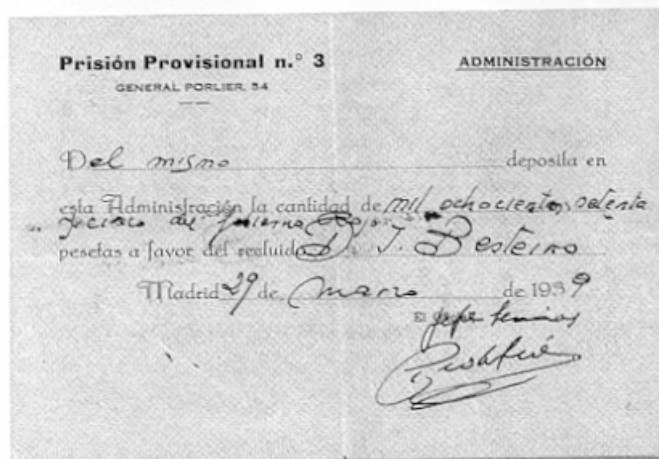 Prisión Provisional n.° 3
GENERAL PORLIER, 54
ADMINISTRACIÓN
Del mismo deposita en
esta Administración la cantidad de mil ochocientas setenta
pesetas a favor del recluido D. J. Besteiro
Madrid 29 de marzo de 1939
El Jefe